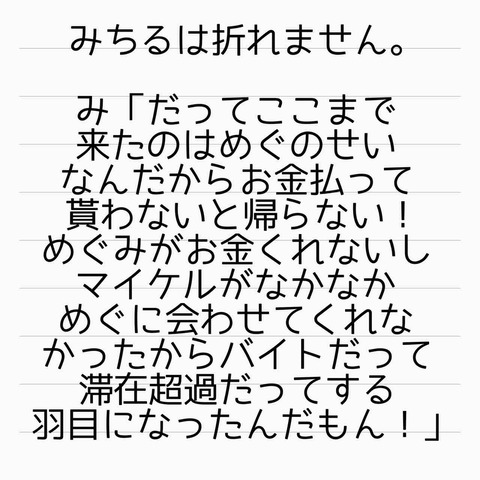 みちるは折れません。
み「だってここまで
来たのはめぐのせい
なんだからお金払って
貰わないと帰らない！
めぐみがお金くれないし
マイケルがなかなか
めぐに会わせてくれな
かったからバイトだって
滞在超過だってする
羽目になったんだもん！」